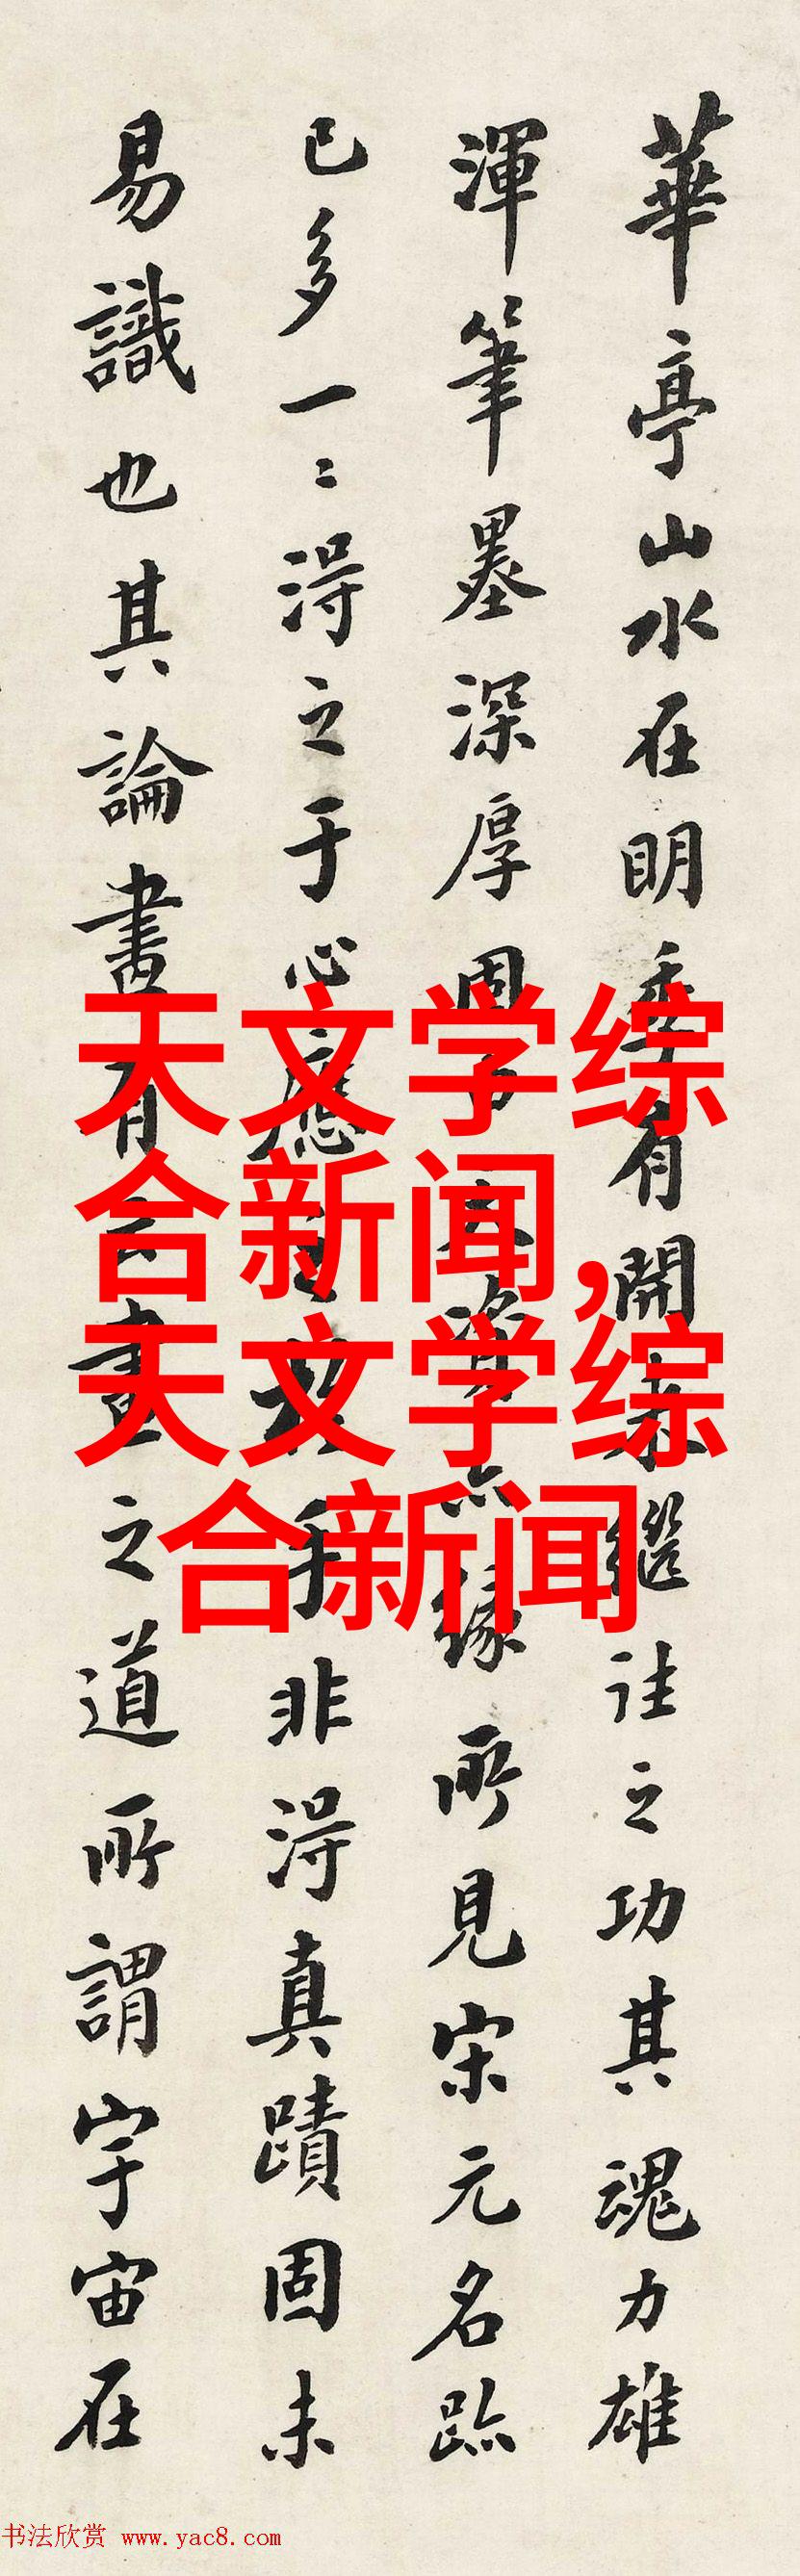 華亭山水在明季有開來繼往之功其魂力雄
渾筆墨深厚固由天資亦緣所見宋元名跡
已多一〻得之于心應之於手非得真蹟固未
易識也其論畫有云畫之道所謂宇宙在
天文学综
合新闻,
天文学综
合新闻
书法欣赏 www.yac8.com